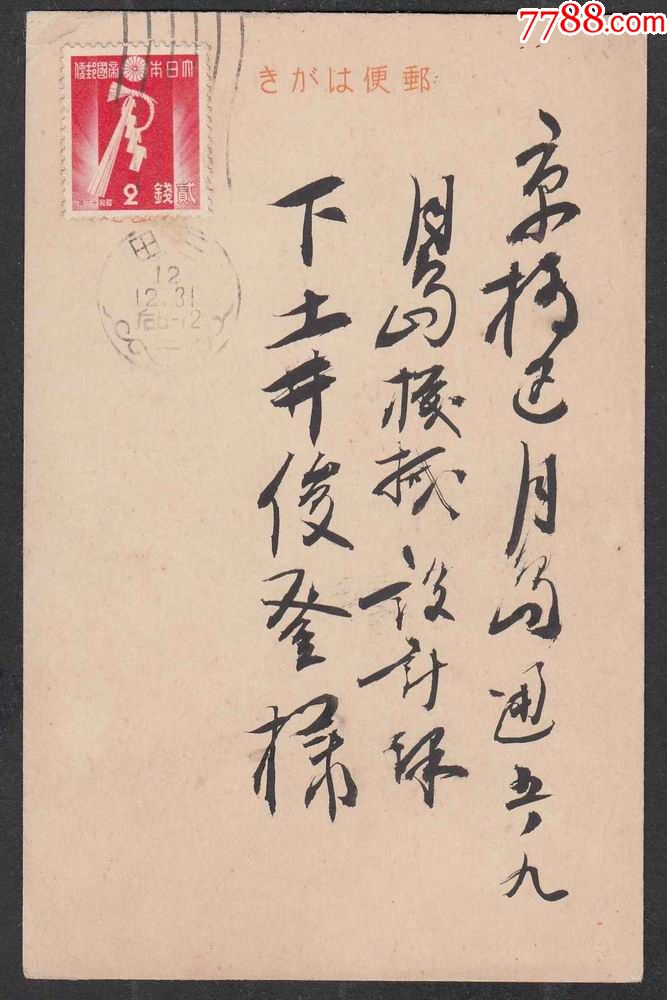 7788.com
郵便はがき
大日本帝國郵便
貳錢
2
三田
12
12.31
后8-12
京橋区月島通五ノ九
月島機械設計課
下土井俊登様